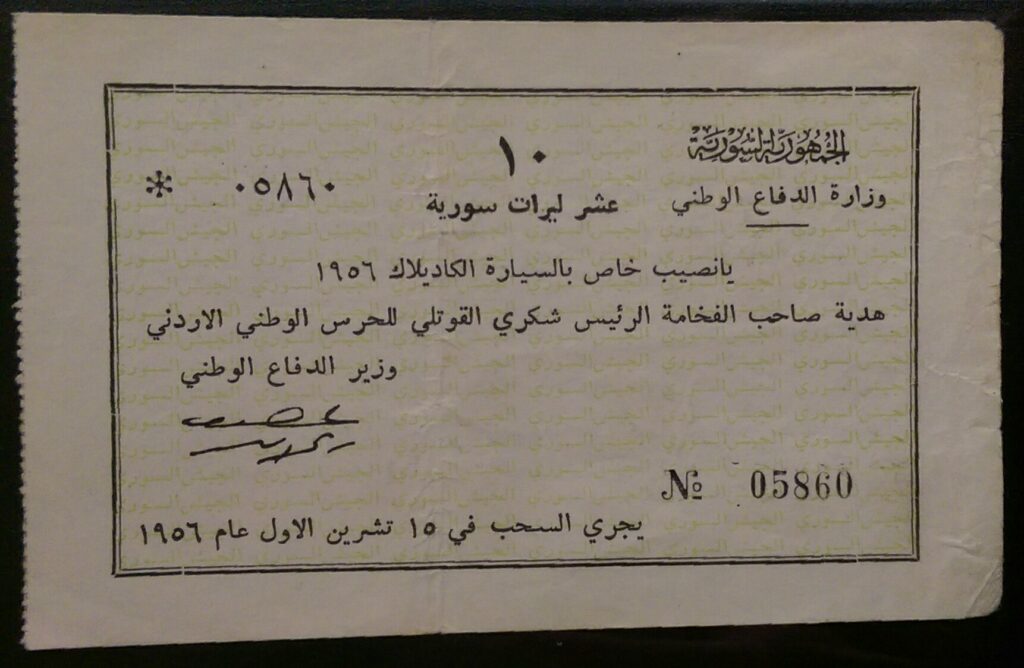 الجمهورية السورية
وزارة الدفاع الوطني
١٠
عشر ليرات سورية
٠٥٨٦٠ *
يانصيب خاص بالسيارة الكاديلاك ١٩٥٦
هدية صاحب الفخامة الرئيس شكري القوتلي للحرس الوطني الاردني
وزير الدفاع الوطني
№ 05860
يجري السحب في ١٥ تشرين الاول عام ١٩٥٦
الجيش السوري